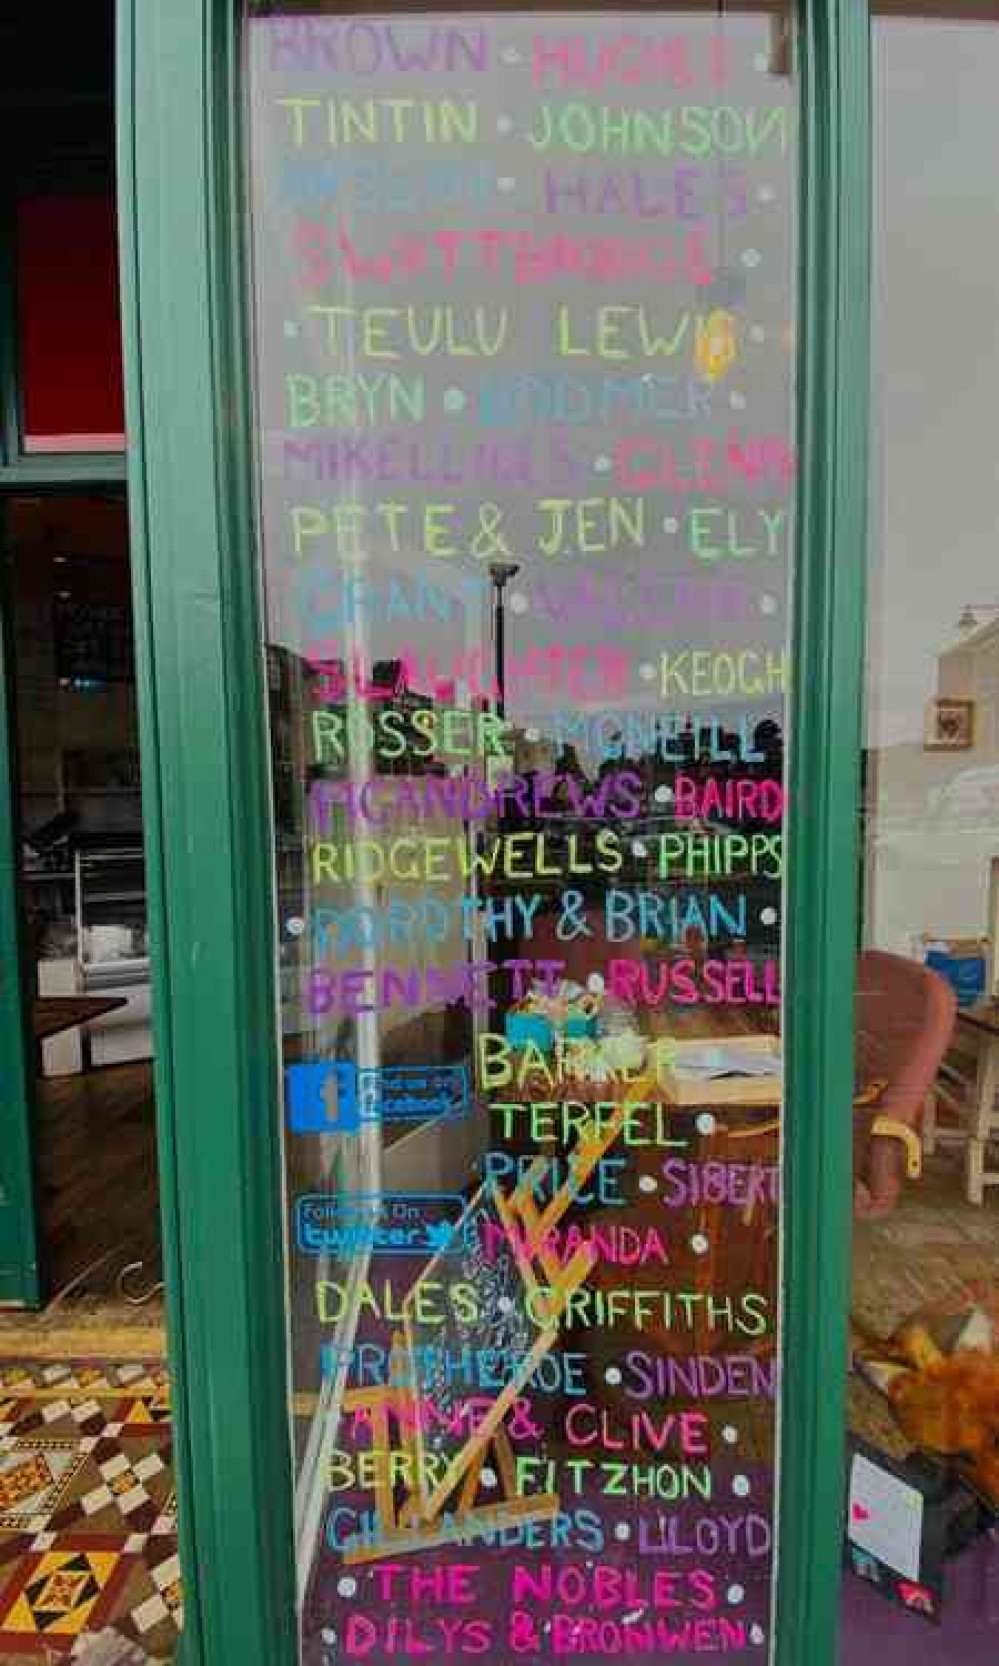 BROWN • HUGHES
TINTIN • JOHNSON
• HALES •
•
• TEULU LEWIS •
BRYN • BODMER •
MIKELLIDES • GLENN
PETE & JEN • ELY
GRANT • •
SLAUGHTER • KEOGH
ROSSER • MCNEILL
MCANDREWS • BAIRD
RIDGEWELLS • PHIPPS
• DOROTHY & BRIAN •
BENNETT • RUSSELL
BARKER •
Find us on
facebook
TERFEL •
PRICE • SIBERT
Follow us On
twitter
MIRANDA •
DALES • GRIFFITHS
PROTHEROE • SINDEN
ANNE & CLIVE •
BERRY • FITZHON •
GILLANDERS • LLOYD
• THE NOBLES •
• DILYS & BRONWEN •